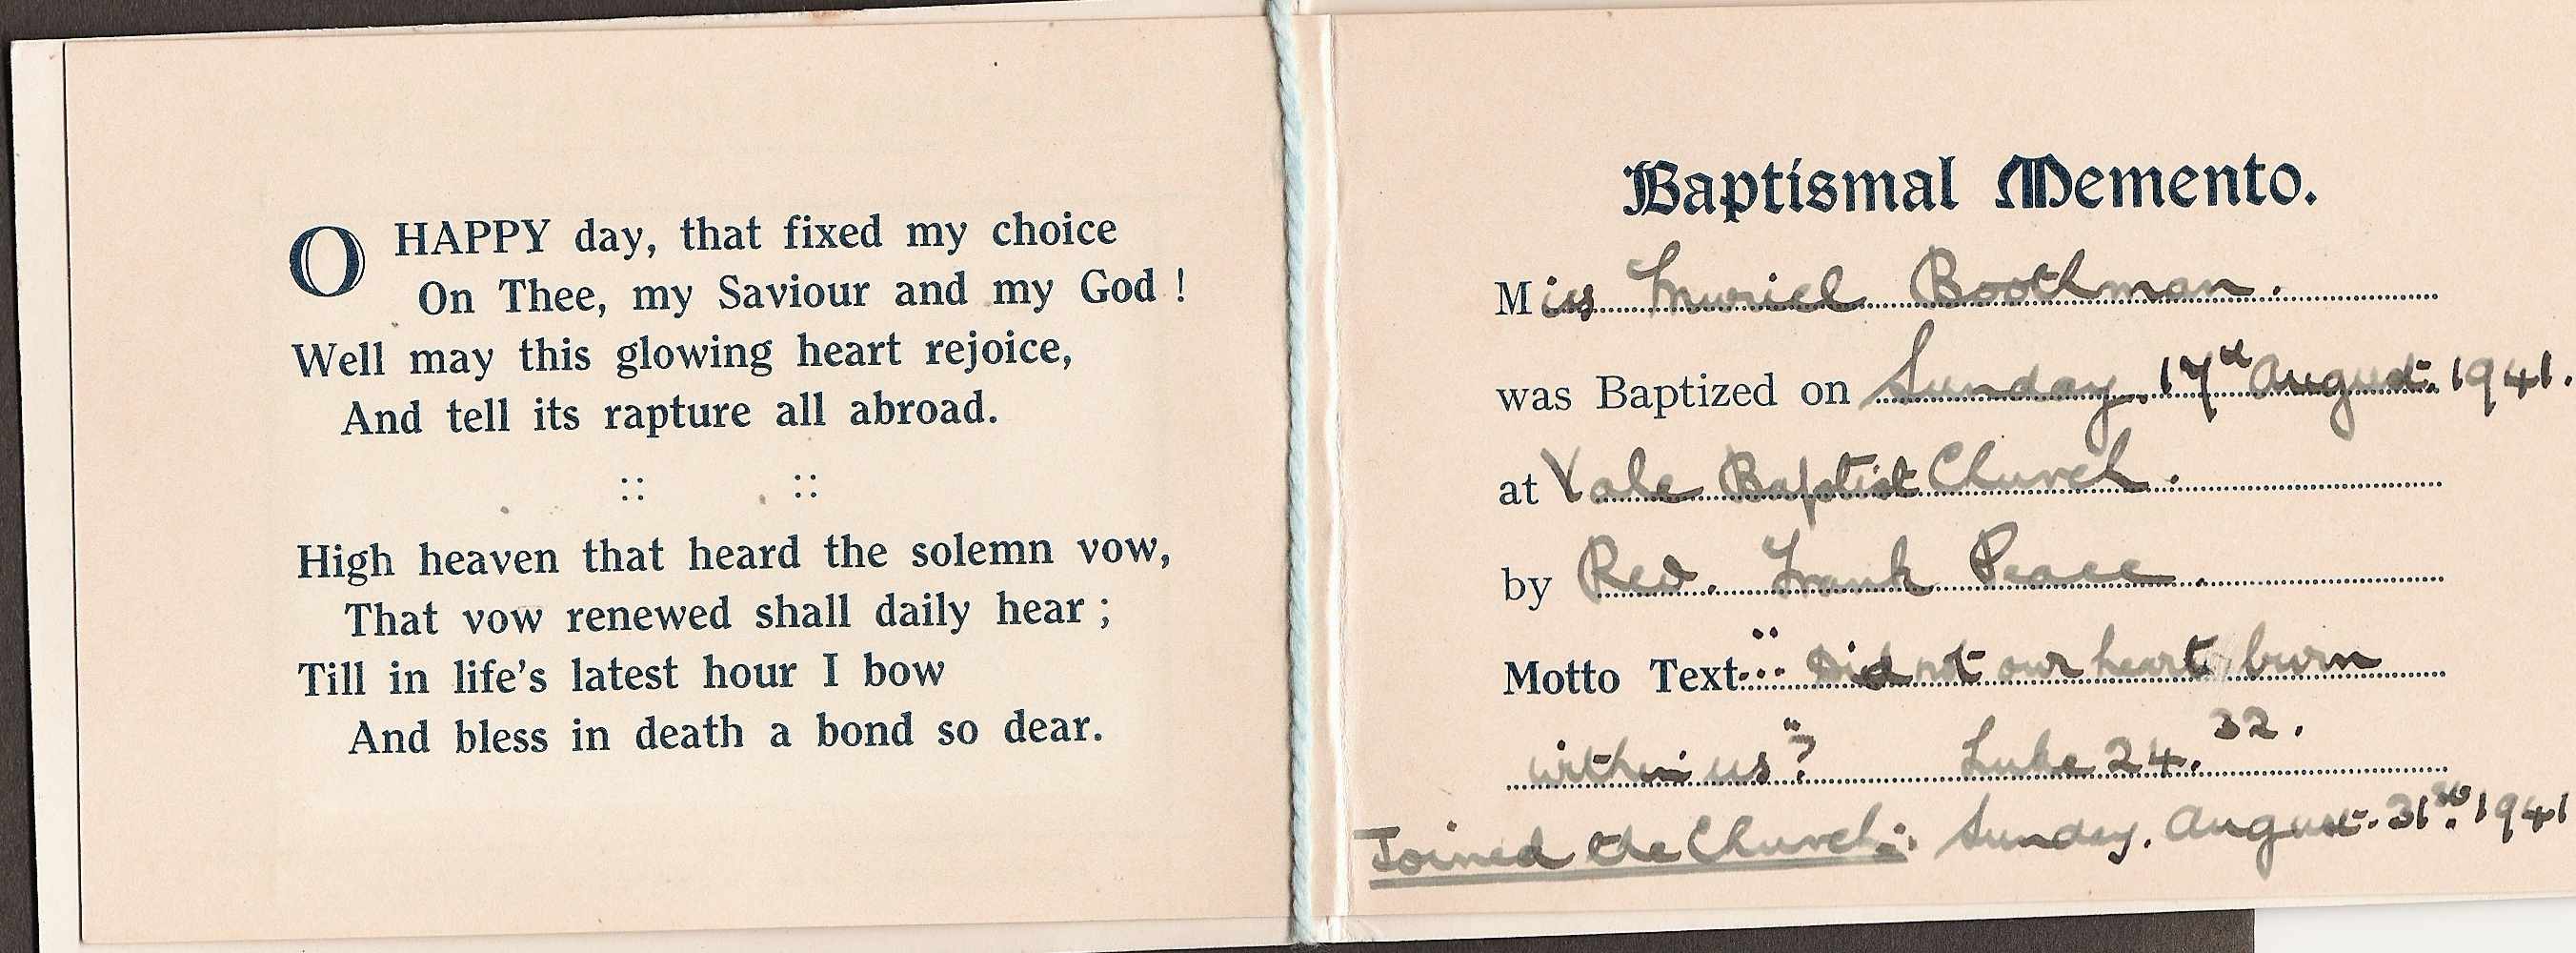 O HAPPY day, that fixed my choice
On Thee, my Saviour and my God !
Well may this glowing heart rejoice,
And tell its rapture all abroad.
:: ::
High heaven that heard the solemn vow,
That vow renewed shall daily hear ;
Till in life's latest hour I bow
And bless in death a bond so dear.
Baptismal Memento.
Miss Muriel Boothman.
was Baptized on Sunday. 17th August. 1941.
at Vale Baptist Church.
by Rev. Frank Peace.
Motto Text: "Did not our heart burn
within us"? Luke 24. 32.
Joined the Church: Sunday. August. 31st. 1941